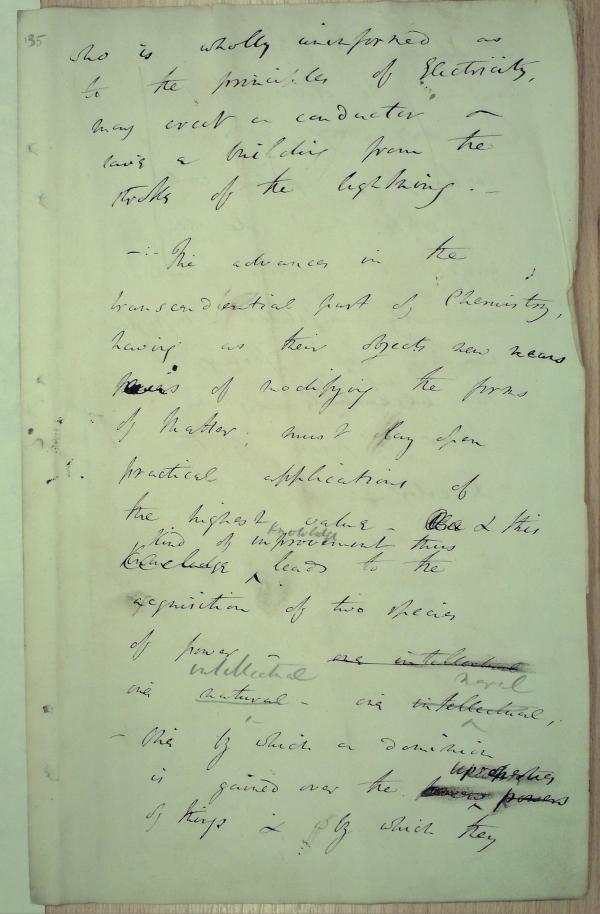 135
who is wholly uninformed as
to the principles of Electricity,
may erect a conductor &
save a building from the
stroke of the lightning. –
– The advances in the
transcendental part of Chemistry,
having as their objects new means
of modifying the forms
of Matter, must lay open
practical applications of
the highest value – & this
knowledge
kind of improvement thus
knowledge leads to the
acquisition of two species
of power – one intellectual
intellectual novel
one natural – one intellectual,
– one by which a dominion
properties
is gained over the powers
of things & by which they